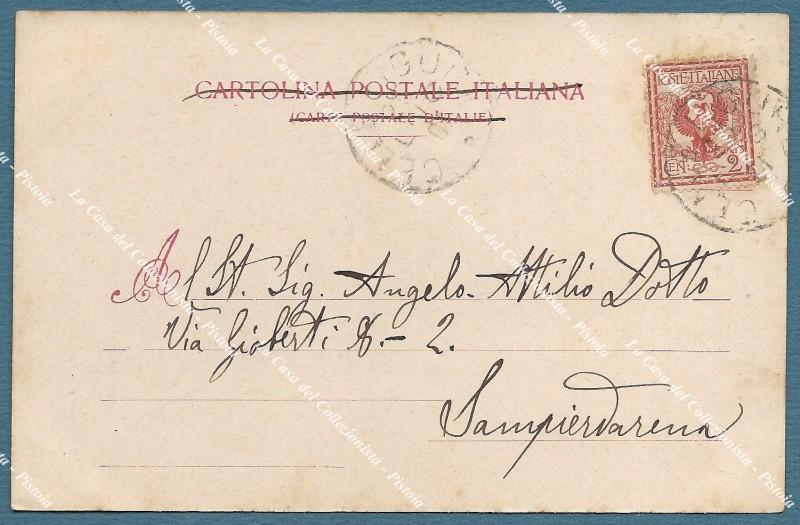 CARTOLINA POSTALE ITALIANA
(CARTE POSTALE D'ITALIE)
POSTE ITALIANE
CEN. 2
Al St. Sig. Angelo-Attilio Dotto
Via Gioberti 8.- 2.
Sampierdarena
La Casa del Collezionista - Pistoia